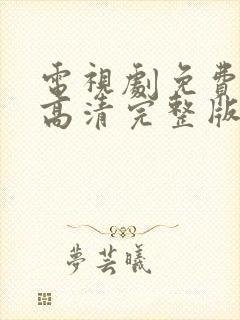 電視劇免費
高清完整版
夢芸曦